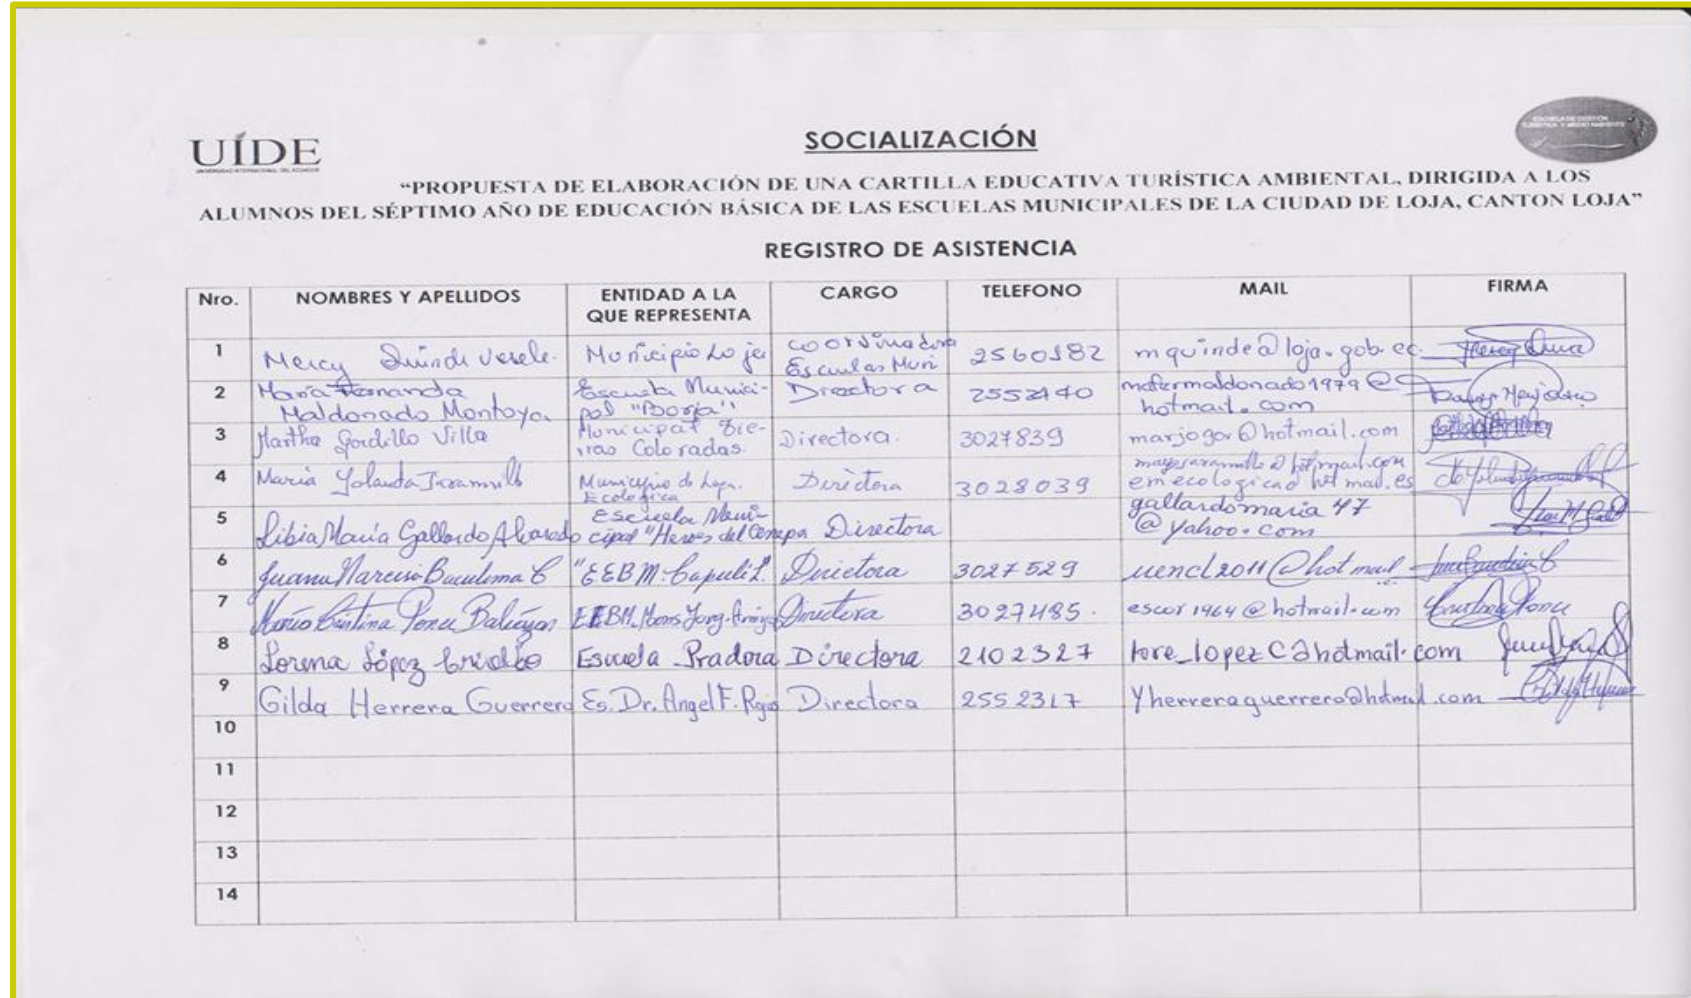 UÍDE
UNIVERSIDAD INTERNACIONAL DEL ECUADOR
SOCIALIZACIÓN
ESCUELA DE GESTIÓN
TURÍSTICA Y MEDIO AMBIENTE
“PROPUESTA DE ELABORACIÓN DE UNA CARTILLA EDUCATIVA TURÍSTICA AMBIENTAL, DIRIGIDA A LOS
ALUMNOS DEL SÉPTIMO AÑO DE EDUCACIÓN BÁSICA DE LAS ESCUELAS MUNICIPALES DE LA CIUDAD DE LOJA, CANTON LOJA”
REGISTRO DE ASISTENCIA
Nro. NOMBRES Y APELLIDOS ENTIDAD A LA QUE REPRESENTA CARGO TELEFONO MAIL FIRMA
1 Mercy Quinde Municipio Loja Coordinadora Escuelas Muni 2560182 mquinde@loja.gob.ec
2 María Fernanda Maldonado Montoya Escuela Munici-pal "Borja" Directora 2552140 mafermaldonado1979@hotmail.com
3 Martha Gordillo Villa Municipal Tie-rras Coloradas. Directora. 3027839 marjogor@hotmail.com
4 María Yolanda Jaramillo Municipio de Loja. Ecologica Directora 3028039 emecologica@hotmail.es
5 Libia María Gallardo Alvarado Escuela Muni-cipal "Heroes del Cenepa Directora gallardomaria47@yahoo.com
6 Juana Narcisa Baculima C "EEBM. Capulí L." Directora 3027529 uencl2011@hotmail
7 María Cristina Ponce EEBM. Mons Jorg. Directora 3027485. escor1964@hotmail.com
8 Lorena López Criollo Escuela Pradera Directora 2102327 lore_lopezC@hotmail.com
9 Gilda Herrera Guerrero Es. Dr. Angel F. Rojas Directora 2552317 Yherreraguerrero@hotmail.com
10
11
12
13
14